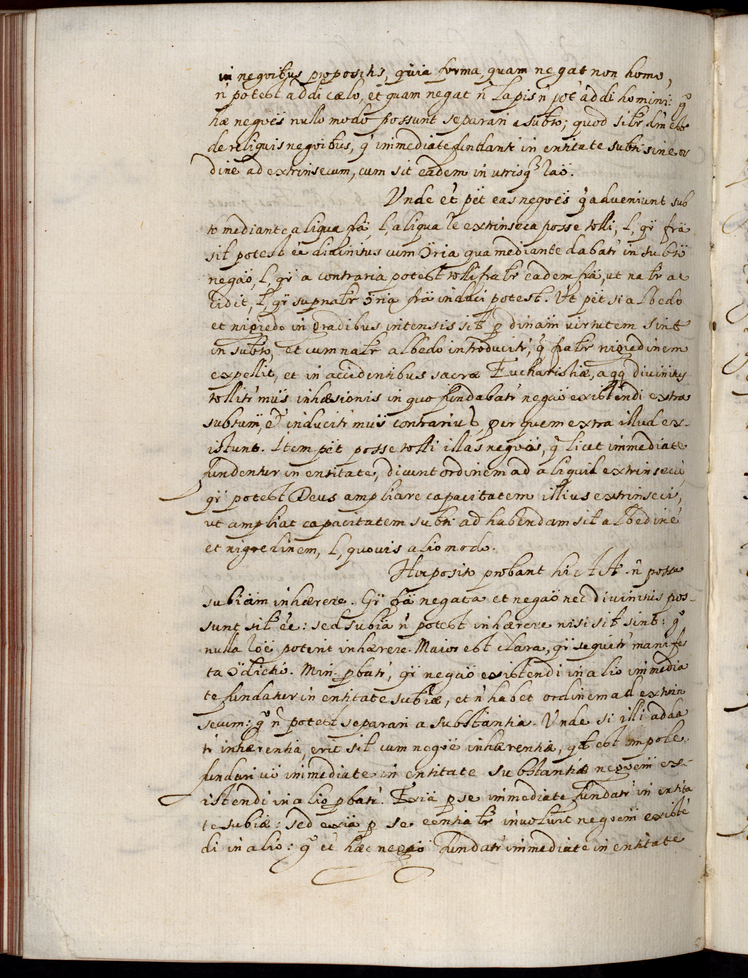 in negoibus propositis, quia forma, quam negat non homo,
n̄ potest addi cælo, et quam negat n̄ lapis n̄ pot' addi homini: gͦ
hæ negoēs nullo modo possunt separari a subto; quod sitr dm̄ est
de reliquis negoibus, q̄ immediate fundantr in entitate subti sine or
dine ad extrinsecum, cum sit eadem in utrisq̄ rāo.
Unde et pēt eas negoēs q̄ adveniunt sub
to mediante aliqua frā, l, aliqua re extrinseca posse tolli, l, qr̄ frā
sit potest eē divinitus cum 9ria qua mediante dabatr in subto
negaō, l, qr̄ a contraria potest tolli eadem frā, ut natr ac
cidit, l, qr̄ supnatr 9ria frā induci potest. Ut pēt si albedo
et nigredo in gradibus intensis sit p dinam virtutem sint
in subto, et cum natr albedo introducitr, q̄ natr nigredinem
expellit, et in accidentibus sacræ Eucharistiæ, a qq̄ divinitus
tollitr mus inhæsionis in quo fundabatr negaō existendi extra
subtum, et inducitr mus contrarius, per quem extra illud ex-
istunt. Item pēt posse tolli illas negoēs, q̄ licet immediate
fundentur in entitate, dicunt ordinem ad aliquid extrinsecū
qr̄ potest Deus ampliare capacitatem illius extrinseci,
ut ampliat capacitatem subti ad habendam sit albedinē
et nigredinem, l, quovis alio modo.
His posito probant hi AA. n̄ posse
subiam inhærere. Qr̄ frā negata et negaō nec divinitus pos-
sunt sit eē: sed subia n̄ potest inhærere nisi sit sint: gͦ
nulla rōe poterit inhærere. Maior est clara, qr̄ sequitr manifes
ta 9dictio. Min. pbatr, qr̄ negaō existendi in alio immedia
te fundatur in entitate subiæ, et n̄ habet ordinem ad extrin
secum: gͦ n̄ potest separari a substantia. Unde si illi adda
tr inhærentia, erit sit cum negoē inhærentiæ, qd est impole.
fundari vō immediate in entitate substantiæ negoem ex-
istendi in alio pbatr. Exia p se immediate fundatr in entita
te subiæ: sed exia p se eentiatr involvit negoem existē
di in alio: gͦ et hæc negaō fundatr immediate in entitate